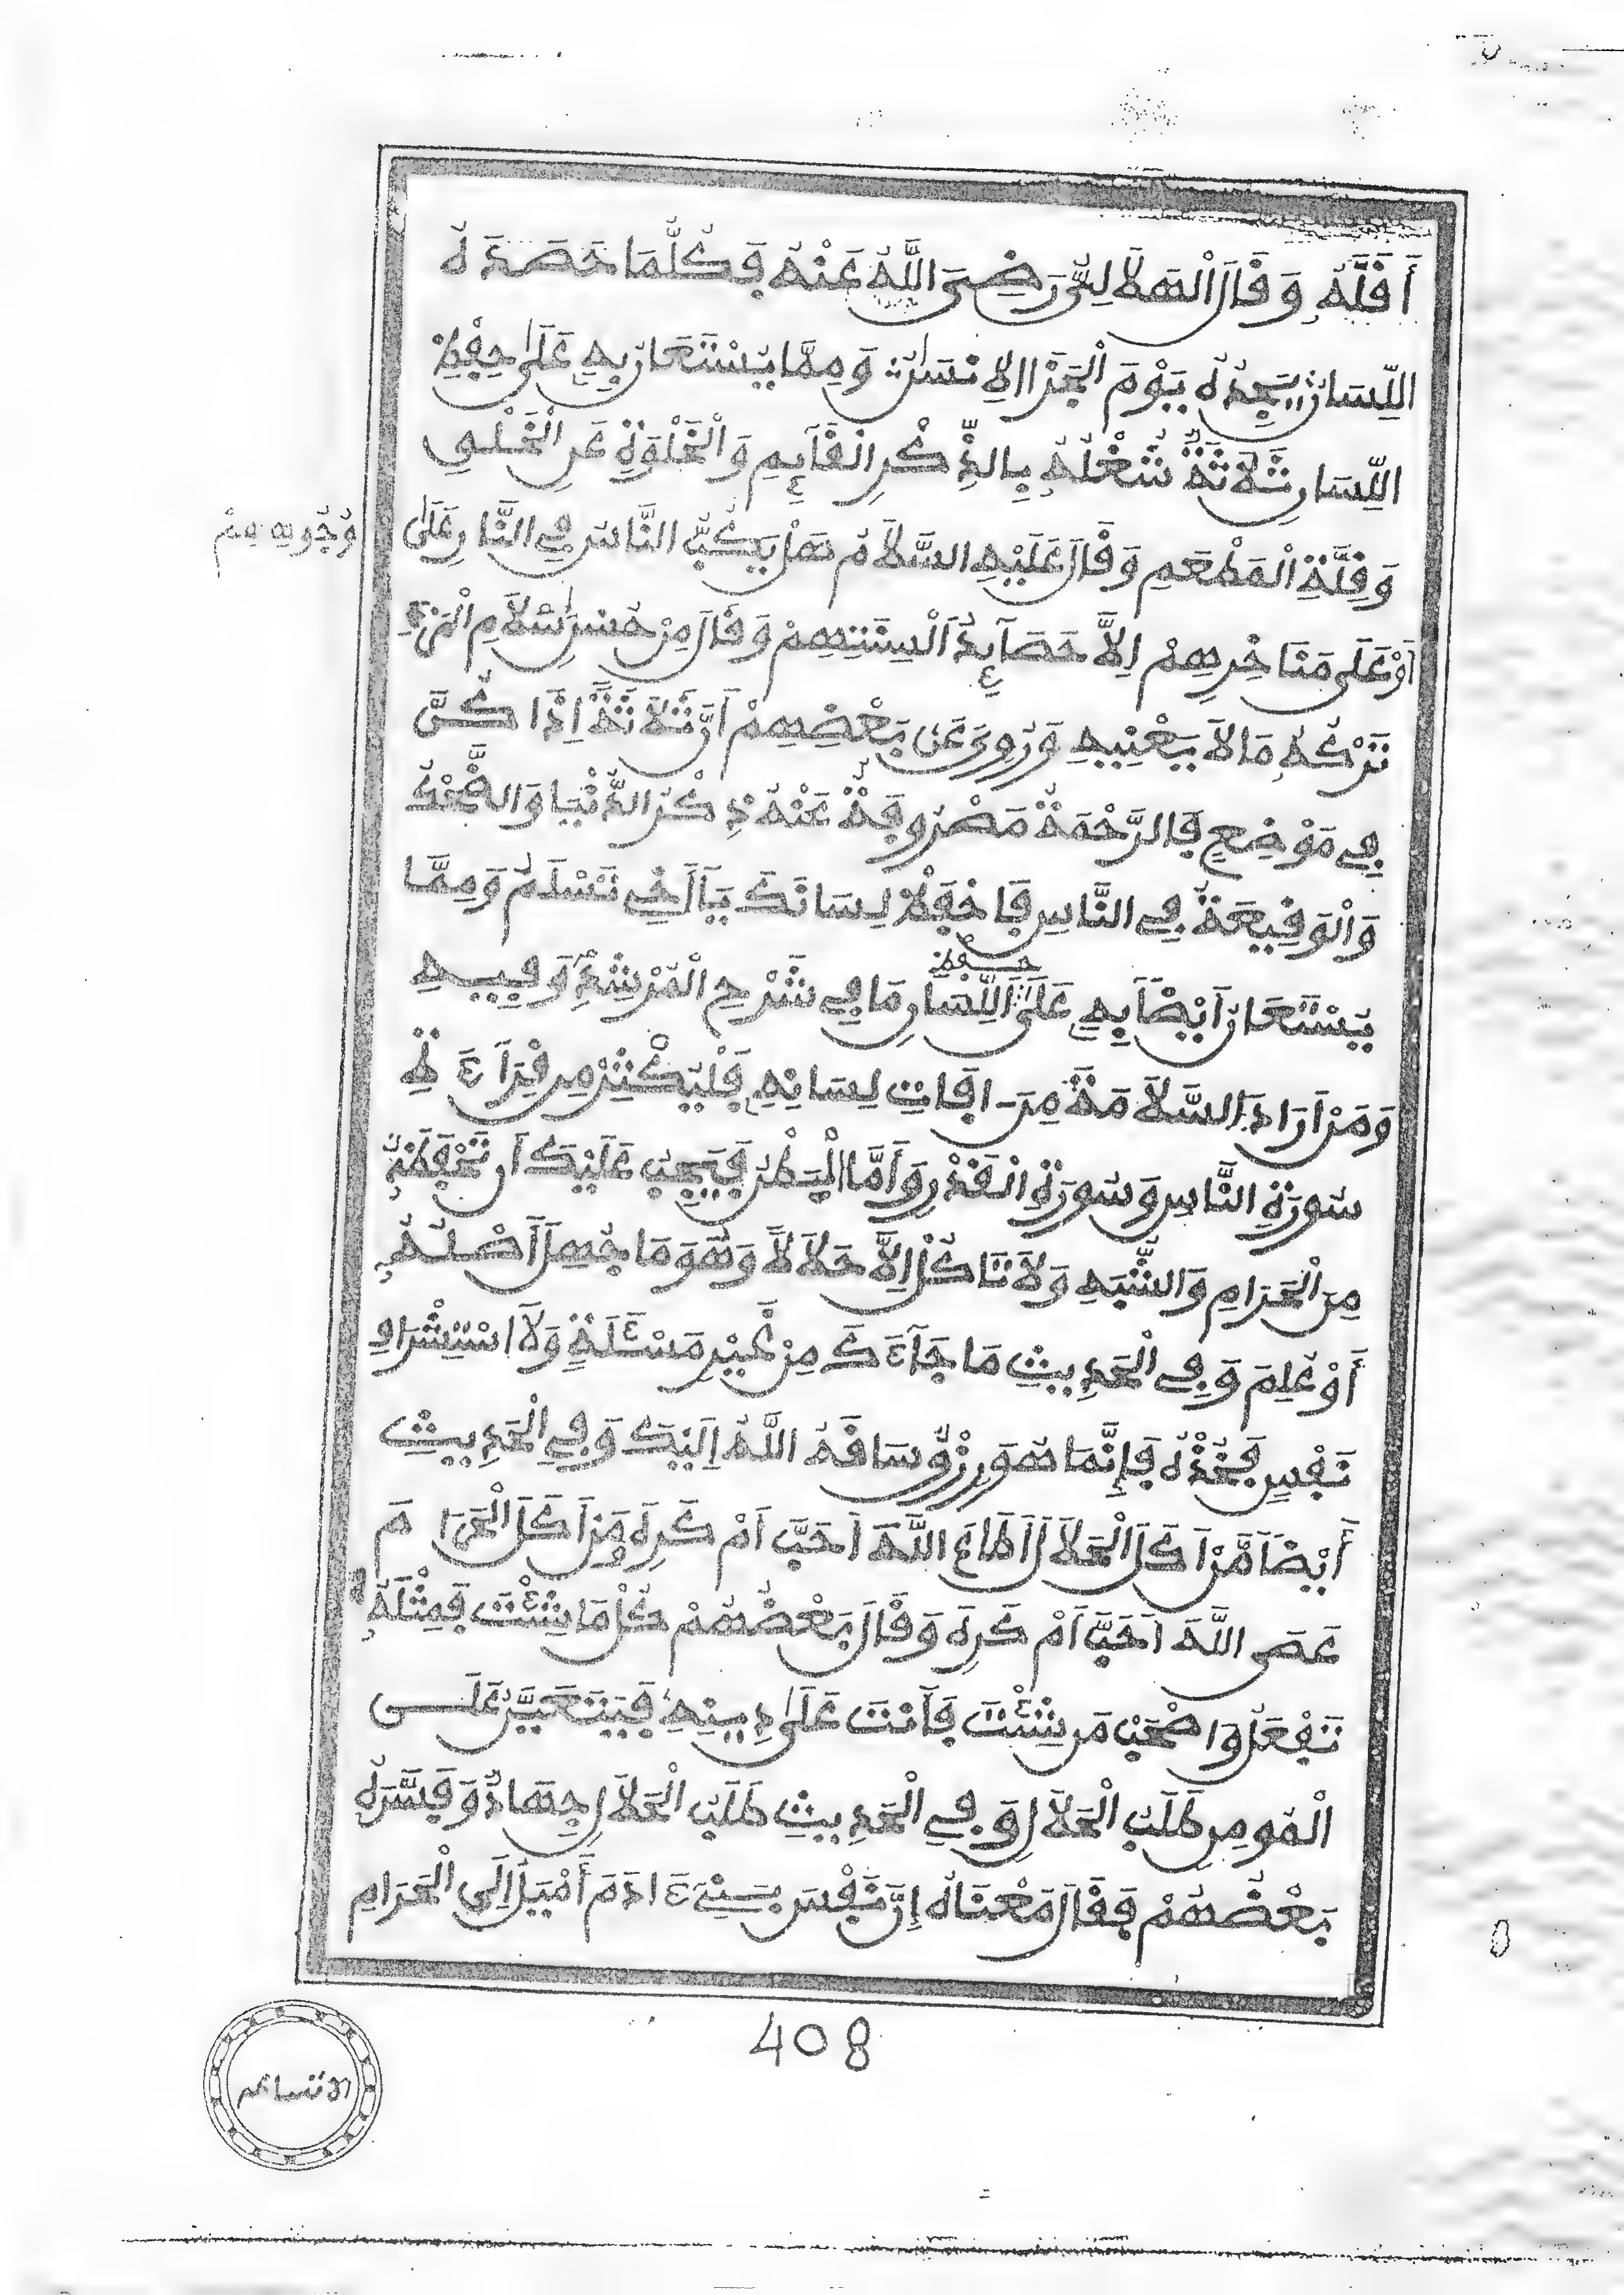 أَقَلَّهُ وَقَالَ الْهِلَالِيُّ رَضِيَ اللَّهُ عَنْهُ فَكُلُّمَا حَصَدَهُ
اللِّسَانُ يَجِدُهُ يَوْمَ الْجَزَا الِانْسَانُ وَمِمَّا يُسْتَعَانُ بِهِ عَلَى حِفْظِ
اللِّسَانِ ثَلَاثَةٌ شُغْلُهُ بِالذِّكْرِ الْقَآئِمِ وَالْخَلْوَةِ عَنِ الْخَلْقِ
وَقِلَّةِ الْمَطْعَمِ وَقَالَ عَلَيْهِ السَّلَامُ هَلْ يَكُبُّ النَّاسَ فِي النَّارِ عَلَى وُجُوهِهِمْ
أَوْ عَلَى مَنَاخِرِهِمْ اِلَّا حَصَآئِدُ أَلْسِنَتِهِمْ وَقَالَ مِنْ حُسْنِ إِسْلَامِ الْمَرْءِ
تَرْكُهُ مَا لَا يَعْنِيهِ وَرُوِيَ عَنْ بَعْضِهِمْ أَنَّ ثَلَاثَةً اِذَا كُنَّ
فِي مَوْضِعٍ فَالرَّحْمَةُ مَصْرُوفَةٌ عَنْهُ ذِكْرُ الدُّنْيَا وَالضَّحْكُ
وَالْوَقِيعَةُ فِي النَّاسِ فَاحْفَظْ لِسَانَكَ يَا أَخِي تَسْلَمُ وَمِمَّا
يُسْتَعَانُ أَيْضًا بِهِ عَلَى حفظ اللِّسَانِ مَا فِي شَرْحِ الْمُرْشِدِ وَفِيهِ
وَمَنْ اَرَادَ السَّلَامَةَ مِنَ اٰفَاتِ لِسَانِهِ فَلْيُكْثِرْ مِن قِرَآءَةِ
سُورَةِ النَّاسِ وَسُورَةِ الْقَدْرِ وَأَمَّا الْبَطْنُ فَيَجِبُ عَلَيْكَ اَن تَحْفَظَهُ
مِنَ الْحَرَامِ وَالشُّبَهِ وَلَا تَاكُلْ اِلَّا حَلَالًا وَهُوَ مَا جُهِلَ أَصْلُهُ
أَوْ عُلِمَ وَفِي الْحَدِيثِ مَا جَآءَكَ مِنْ غَيْرِ مَسْئَلَةٍ وَلَا اسْتِشْرَافِ
نَفْسٍ فَخُذْهُ فَإِنَّمَا هُوَ رِزْقٌ سَاقَهُ اللَّهُ اِلَيْكَ وَفِي الْحَدِيثِ
أَيْضًا مَنْ اَكَلَ الْحَلَالَ اَطَاعَ اللَّهَ اَحَبَّ اَمْ كَرِهَ وَمَنْ اَكَلَ الْحَرَامَ
عَصَى اللَّهَ اَحَبَّ اَمْ كَرِهَ وَقَالَ بَعْضُهُمْ كُلْ مَا شِئْتَ فَمِثْلَهُ
تَفْعَلُ وَاصْحَبْ مَن شِئْتَ فَأَنْتَ عَلَى دِينِهِ فَيَتَعَيَّنُ عَلَى
الْمُومِنِ طَلَبُ الْحَلَالِ وَفِي الْحَدِيثِ طَلَبُ الْحَلَالِ جِهَادٌ وَفَسَّرَهُ
بَعْضُهُمْ فَقَالَ مَعْنَاهُ إِنَّ نَفْسَ بَنِي ءَادَمَ أَمْيَلُ اِلَى الْحَرَامِ
408